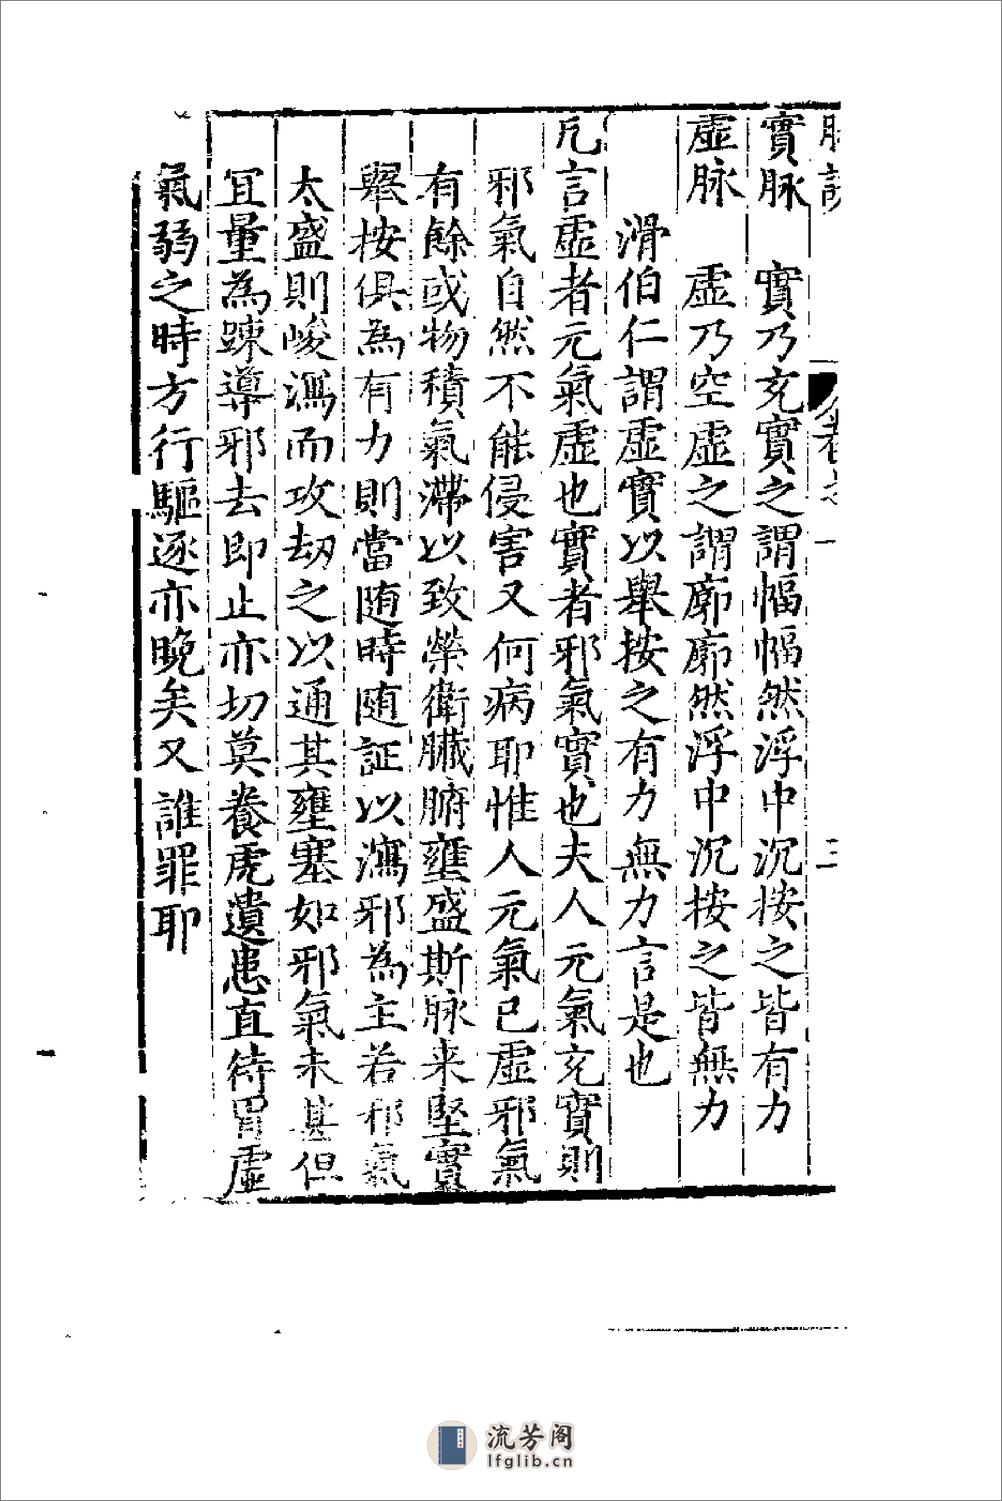 脉訣
卷之一
三
實脉　實乃充實之謂幅幅然浮中沉按之皆有力
虛脉　虛乃空虛之謂廓廓然浮中沉按之皆無力
滑伯仁謂虛實以舉按之有力無力言是也
凡言虛者元氣虛也實者邪氣實也夫人元氣充實則
邪氣自然不能侵害又何病耶惟人元氣已虛邪氣
有餘或物積氣滯以致榮衛臟腑壅盛斯脉来堅實
舉按俱為有力則當随時随証以瀉邪為主若邪氣
太盛則峻瀉而攻刼之以通其壅塞如邪氣未甚但
冝量為踈導邪去即止亦切莫養虎遺患直待胃虛
氣弱之時方行驅逐亦晚矣又誰罪耶
流芳阁
lfglib.cn